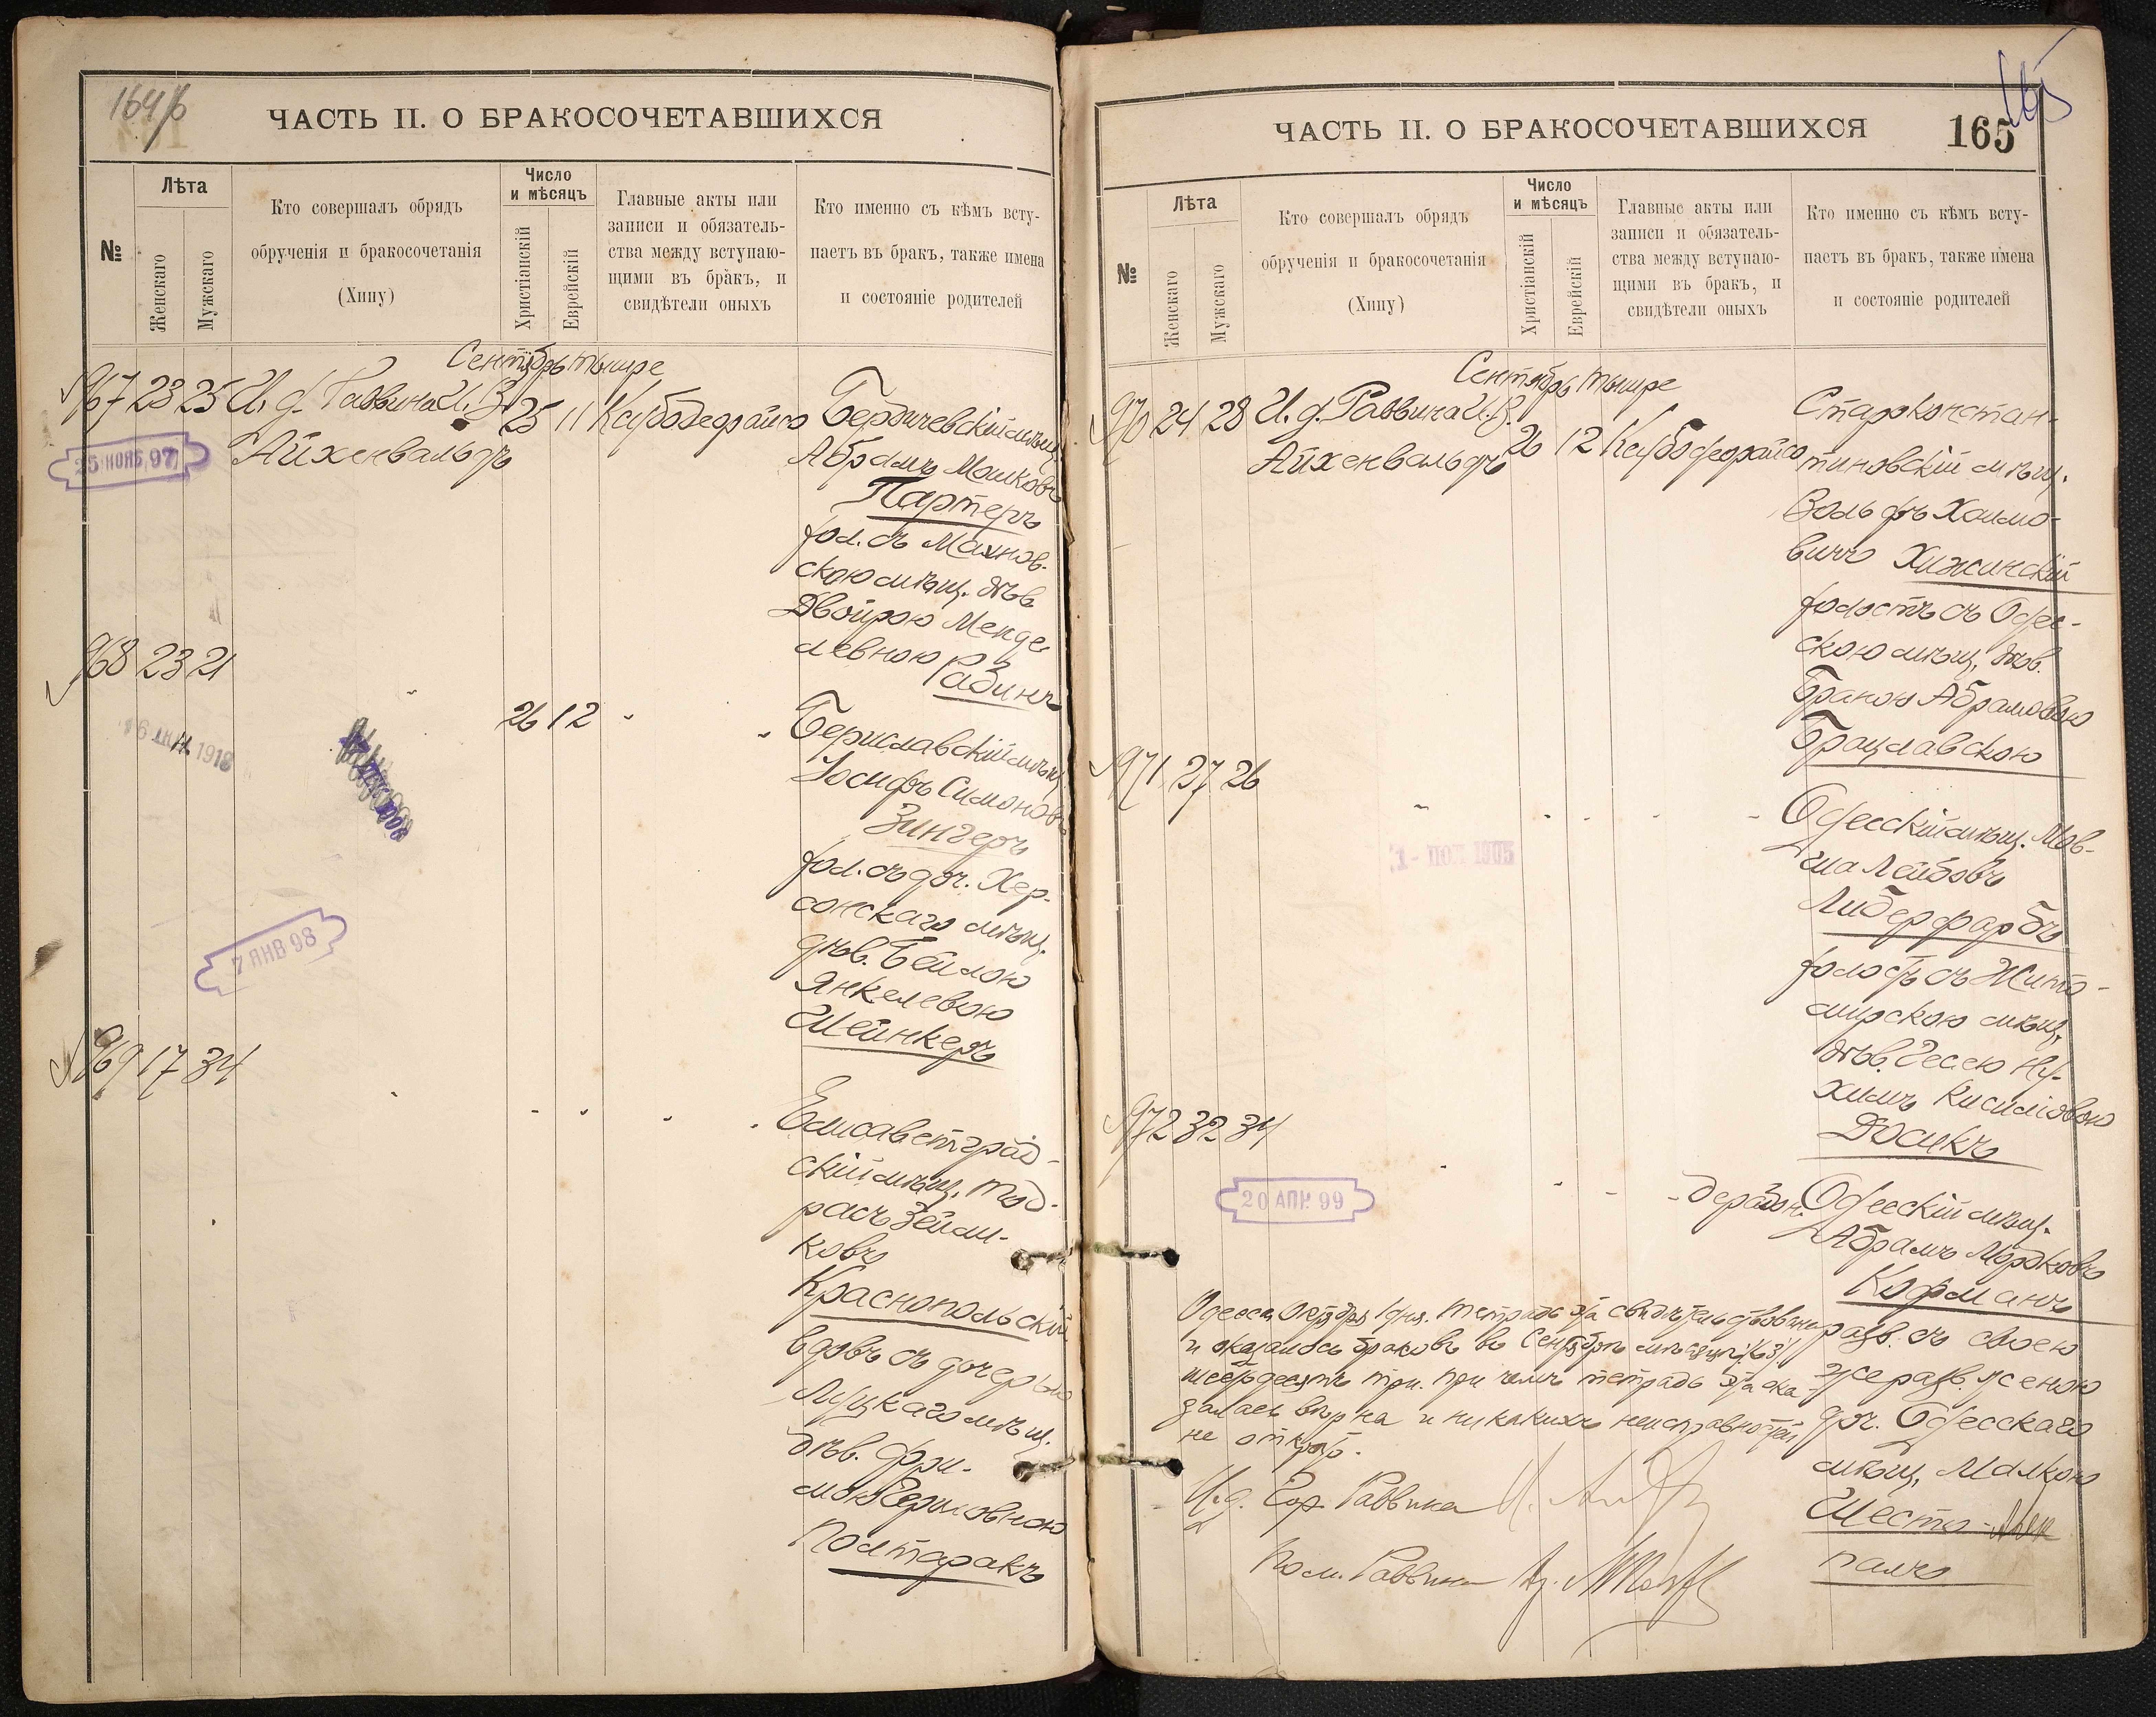 164/б
ЧАСТЬ II. О БРАКОСОЧЕТАВШИХСЯ
№
Лѣта
Женскаго
Мужскаго
Кто совершалъ обрядъ
обрученія и бракосочетанія
(Хипу)
Число
и мѣсяцъ
Христіанскій
Еврейскій
Главные акты или
записи и обязатель-
ства между вступаю-
щими въ бракъ, и
свидѣтели оныхъ
Кто именно съ кѣмъ всту-
паетъ въ бракъ, также имена
и состояніе родителей
Сентябрь Тышре
967 23 25 И. д. Раввина И. В. 25 11 Ксубодеорайсо
Айхенвальдъ
25 НОЯБ. 97
Бердичевскій мѣщ.
Абрамъ Мошковъ
Партеръ
хол. съ Махнов-
скою мѣщ. дѣв.
Двойрою Менде-
левною Рабинъ
968 23 21 26 12
Бериславскій мѣщ.
Іосифъ Симоновъ
Зингеръ
хол. съ доч. Хер-
сонскаго мѣщ.
дѣв. Бейлою
Янкелевою
Шейнкеръ
7 ЯНВ 98
969 17 34
Елисаветград-
скій мѣщ. Тод-
расъ Зейли-
ковъ
Краснопольскій
вдовъ съ дочерью
Луцкаго мѣщ.
дѣв. Фри-
мою Берковною
Полтаракъ
165
ЧАСТЬ II. О БРАКОСОЧЕТАВШИХСЯ
165
№
Лѣта
Женскаго
Мужскаго
Кто совершалъ обрядъ
обрученія и бракосочетанія
(Хипу)
Число
и мѣсяцъ
Христіанскій
Еврейскій
Главные акты или
записи и обязатель-
ства между вступаю-
щими въ бракъ, и
свидѣтели оныхъ
Кто именно съ кѣмъ всту-
паетъ въ бракъ, также имена
и состояніе родителей
Сентябрь Тышре
970 24 28 И. д. Раввина И. В. 26 12 Ксубодеорайсо
Айхенвальдъ
Староконстан-
тиновскій мѣщ.
Вольфъ Хаимо-
вичъ Хижинскій
холостъ съ Одес-
скою мѣщ. дѣв.
Браною Абрамовою
Брацлавскою
971 27 26
Одесскій мѣщ. Мов-
ша Лейбовъ
Либерфарбъ
холостъ съ Жито-
мирскою мѣщ.
дѣв. Гесею Ну-
химъ Кисилювою
Досикъ
972 32 34
20 АПР. 99
Одесскій мѣщ.
Абрамъ Мордковъ
Кофманъ
разв. съ своею
же разв. женою
доч. Одесскаго
мѣщ. Малкою
Шесто-
палъ
Одесса Октября 1 дня. Тетрадь эта свидѣтельствована
и оказалось браковъ въ Сентябрѣ мѣсяцѣ /63/
шестьдесятъ три. При чемъ тетрадь эта ока-
залась вѣрна и никакихъ неисправностей
не открыто.
И. д. Гор. Раввина
Пом. Раввина